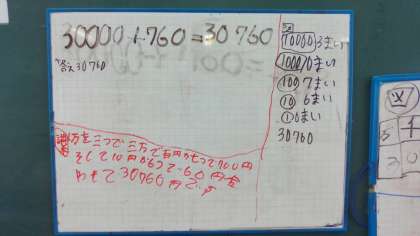 30000+760=30760
答え30760
10000 3まい
1000 0まい
100 7まい
10 6まい
1 0まい
30760
一万を三つで三万で百円が七つで700円
そして10円が6つで60円
合わせて30760円です
図
千
3
0